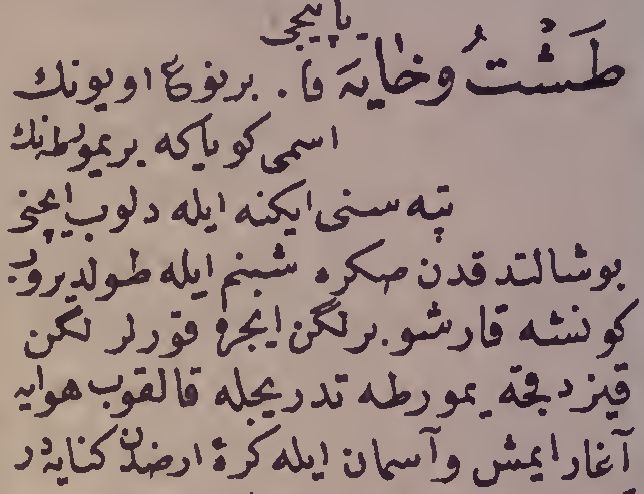 یاپیجی
طَشْتُ وخایَه فا. برنوع اویونك
اسمی كویاكه بریمورطه‌نك
تپه سنی ایكنه ایله دلوب ایچنی
بوشالتدقدن صكره شبنم ایله طولدیروب
كونشه قارشو برلگن ایجره قورلر لكن
قیزدقجه یمورطه تدریجله قالقوب هوایه
آغار ایمش وآسمان ایله كرهٔ ارضدن كنایه‌در